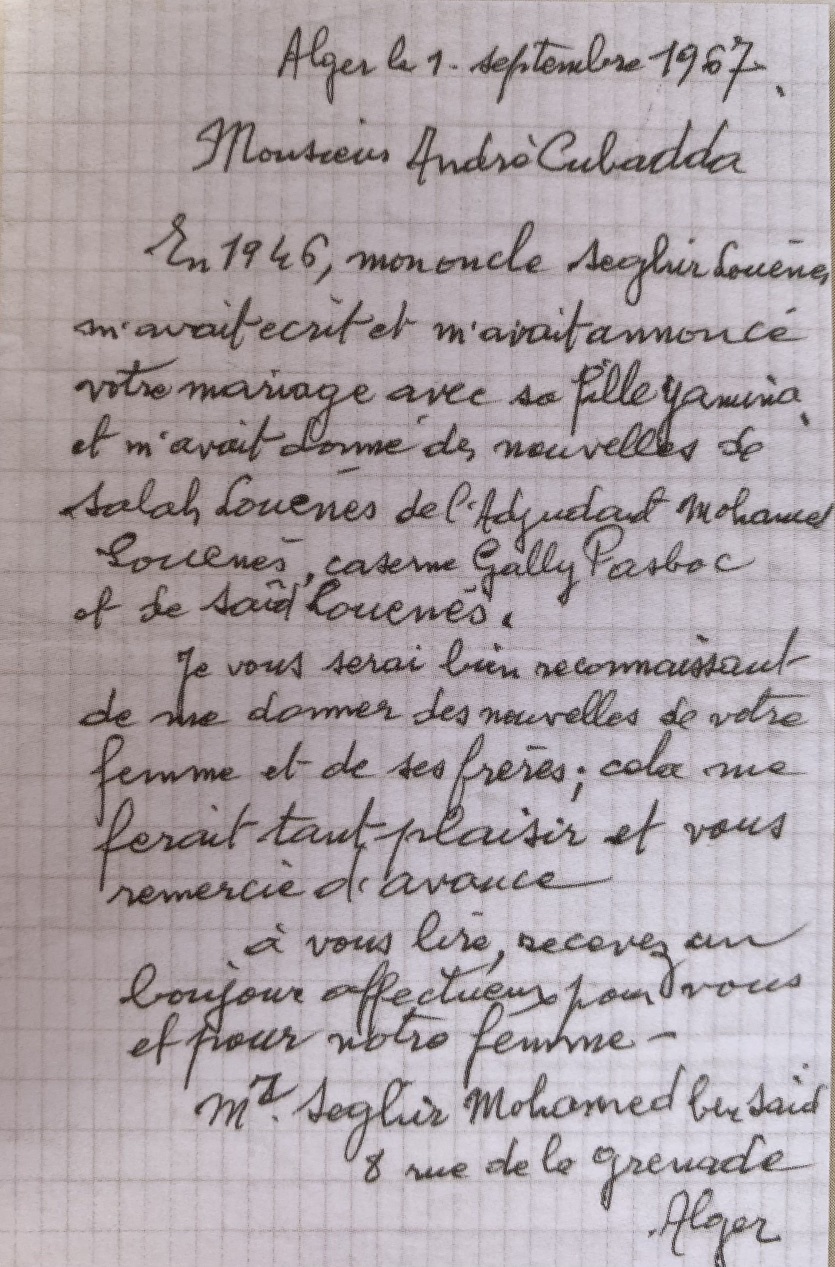 Alger le 1. septembre 1967.
Monsieur André Cubadda
En 1946, mon oncle Seghir Louenes
m'avait ecrit et m'avait annoncé
votre mariage avec sa fille Yamina,
et m'avait donné des nouvelles de
Salah Louenès de l'Adjudant Mohamed
Louenès, caserne Gally Pasboc
et de Saïd Louenès.
Je vous serai bien reconnaissant
de me donner des nouvelles de votre
femme et de ses freres; cela me
ferait tant plaisir et vous
remercie d'avance
à vous lire, recevez un
bonjour affectueux pour vous
et pour votre femme -
Mr. Seghir Mohamed ben Said
8 rue de la Grenade
Alger